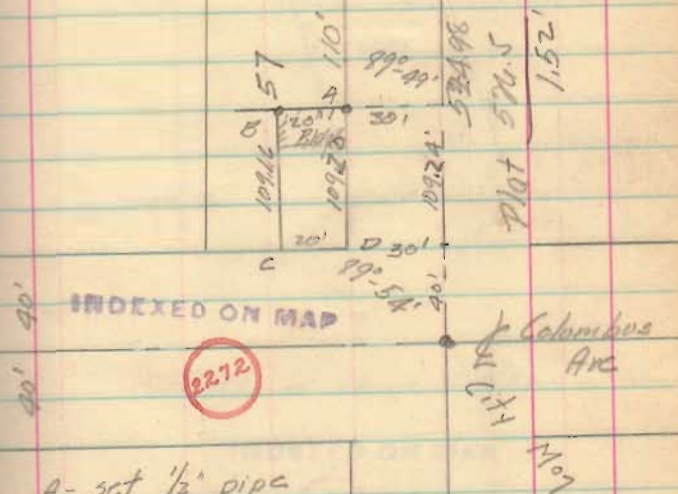 57
110'
89°-49'
534.98
Plat 536.5
1.52'
A
B
20'
30'
Bldg
109.16
109.28
109.24'
20'
D
30'
C
89°-54'
40'
40'
40'
INDEXED ON MAP
2272
Columbus
Ave
A- set 1/2" pipe